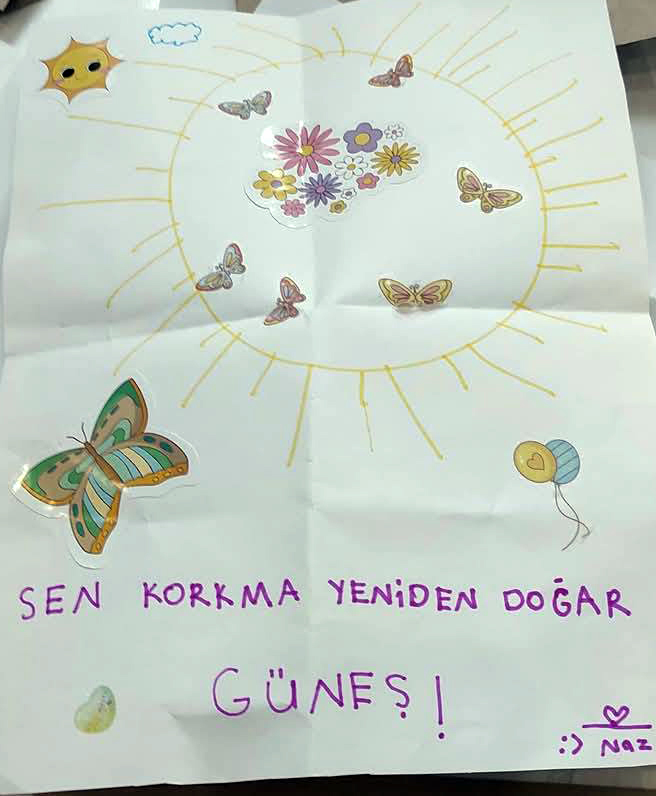 SEN KORKMA YENİDEN DOĞAR
GÜNEŞ!
:) Naz